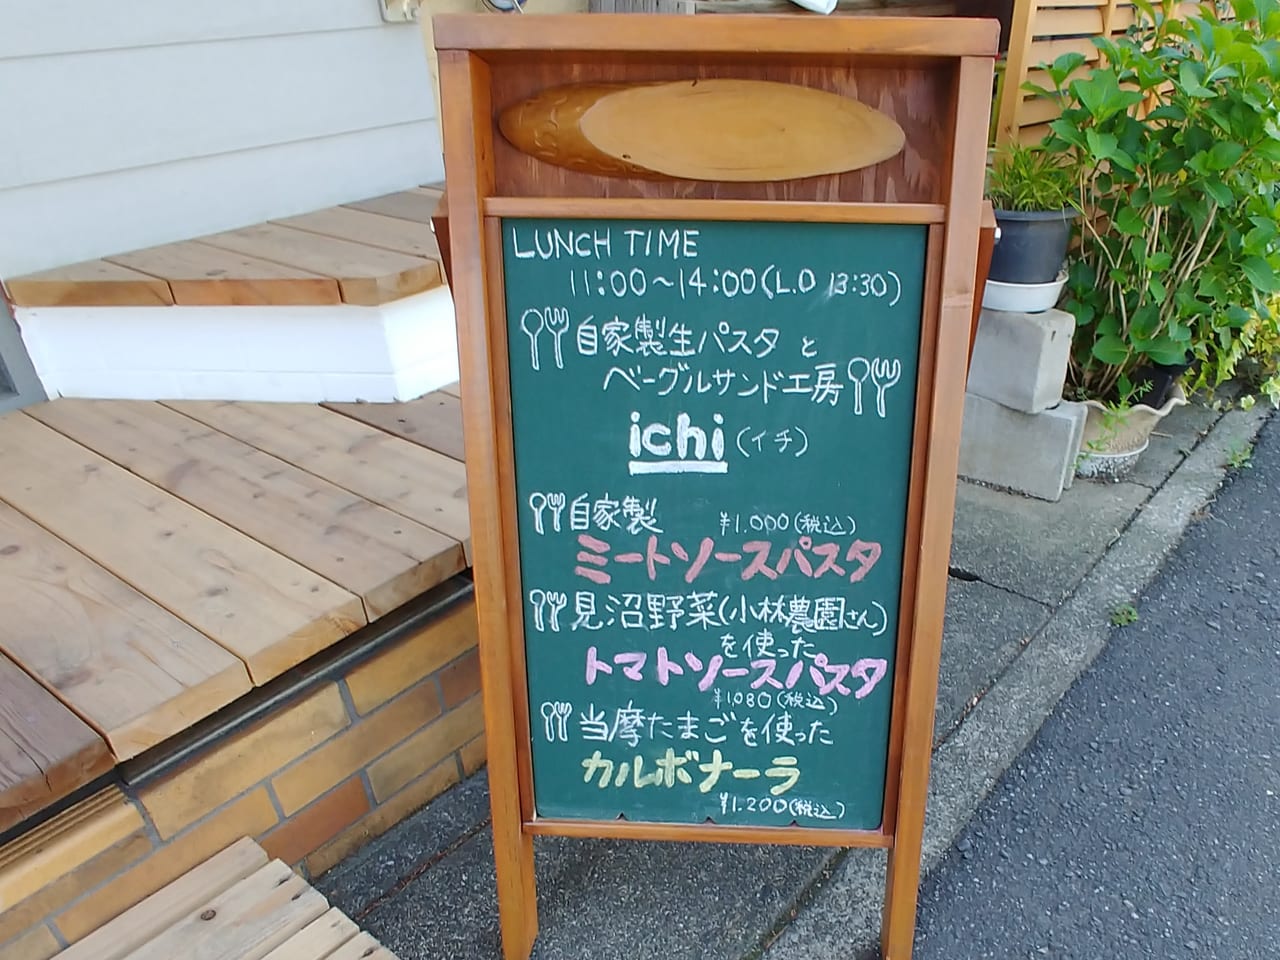 LUNCH TIME
11:00～14:00(L.O 13:30)
自家製生パスタ と
ベーグルサンド工房
ichi (イチ)
自家製 ¥1.000(税込)
ミートソースパスタ
見沼野菜(小林農園さん)
を使った
トマトソースパスタ
¥1.080(税込)
当摩たまごを使った
カルボナーラ
¥1.200(税込)